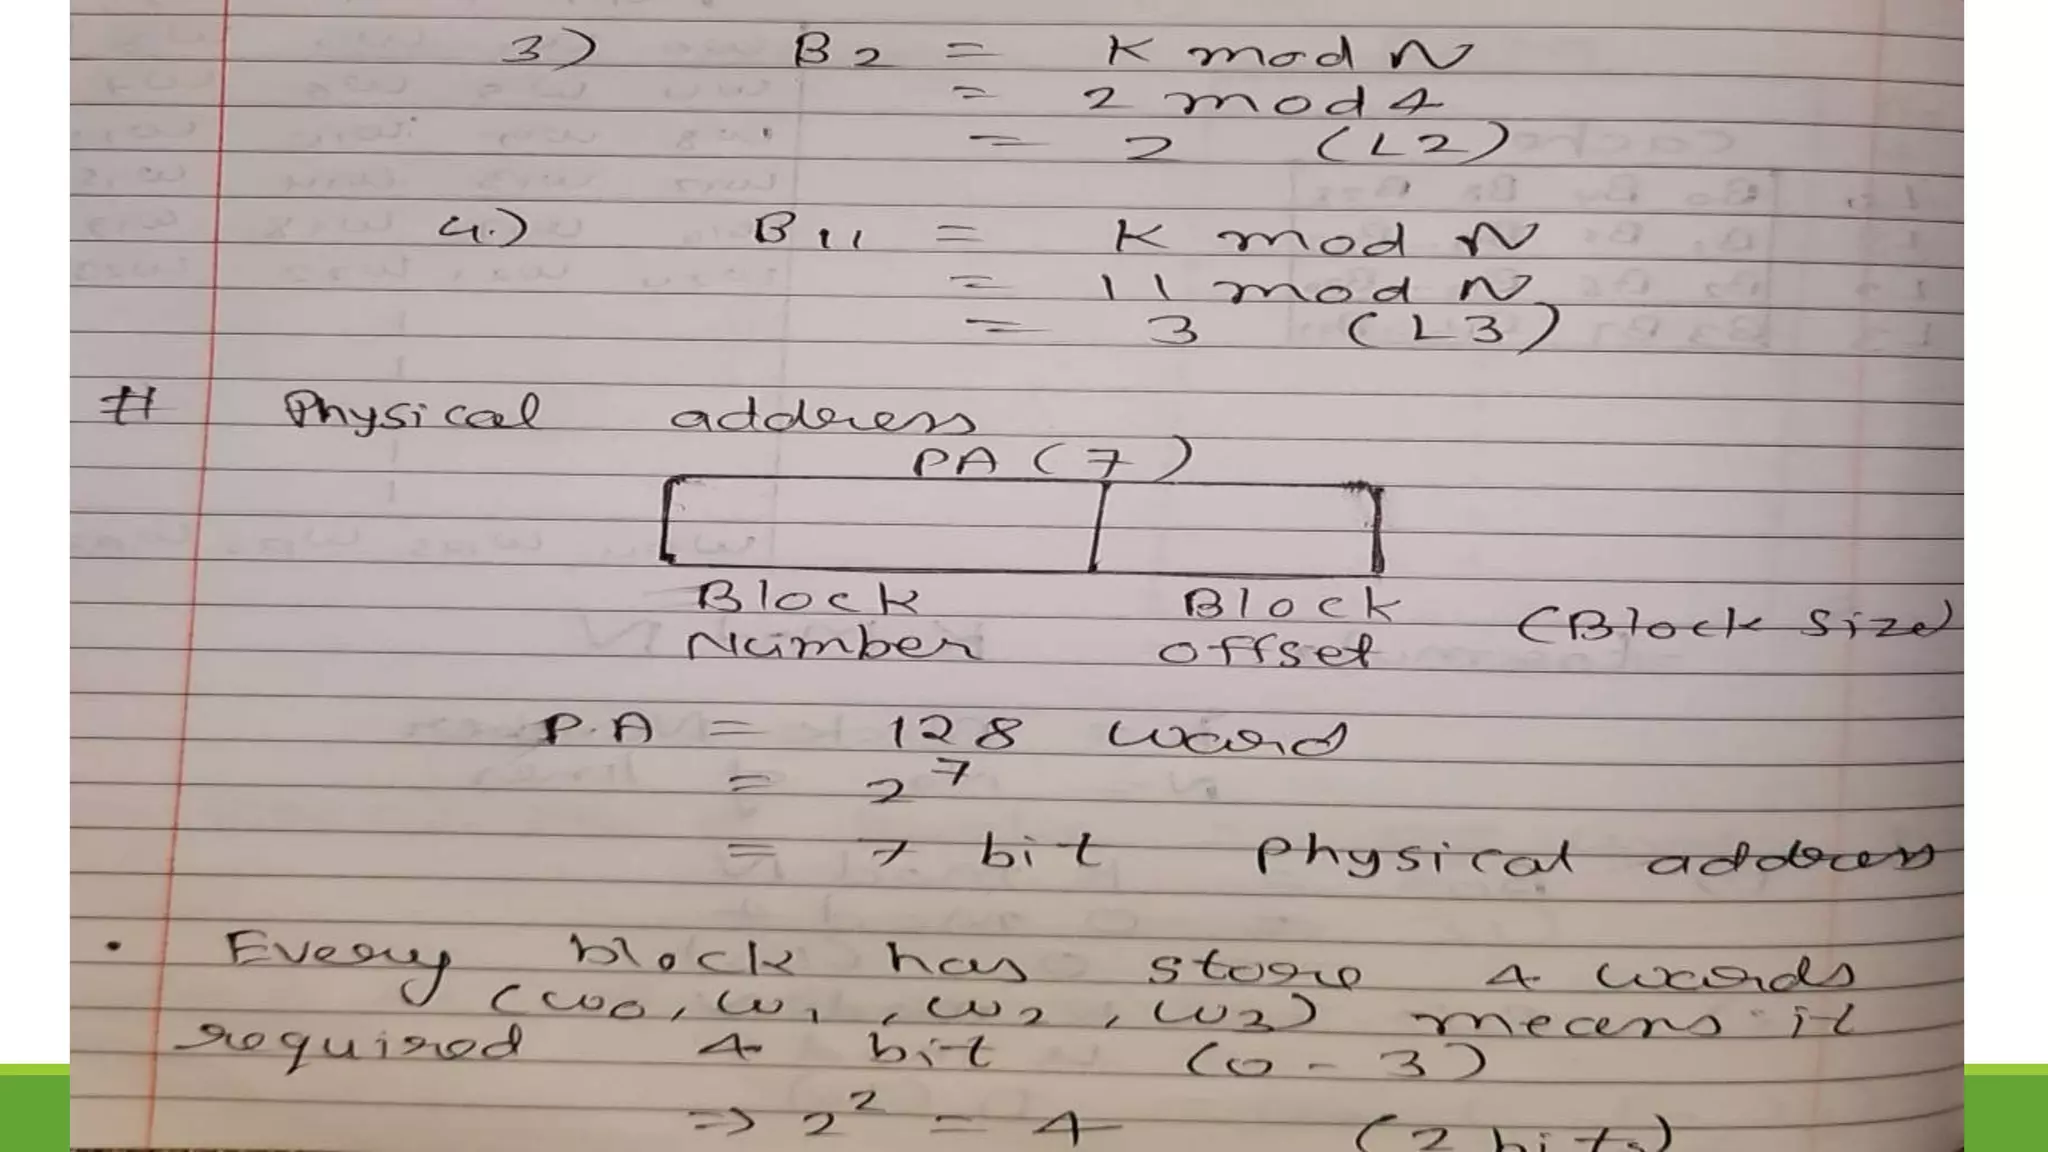 3) B2 = K mod N
= 2 mod 4
= 2 (L2)
4.) B11 = K mod N
= 11 mod N
= 3 (L3)
# Physical address
PA (7)
Block Block (Block Size)
Number offset
P.A = 128 word
= 2^7
= 7 bit Physical address
• Every block has store 4 words
(w0, w1, w2, w3) means it
required 4 bit (0 - 3)
=> 2^2 = 4 (2 bits)